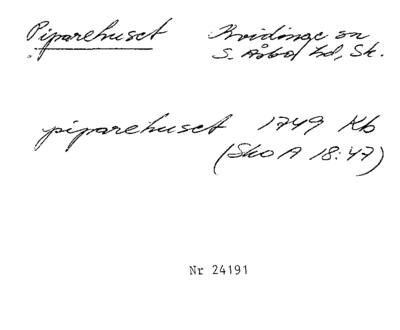 Piparehuset
Kvidinge sn
S. Åsbo hd, Sk.
piparehuset 1749 Kb
(Sko A 18:47)
Nr 24191